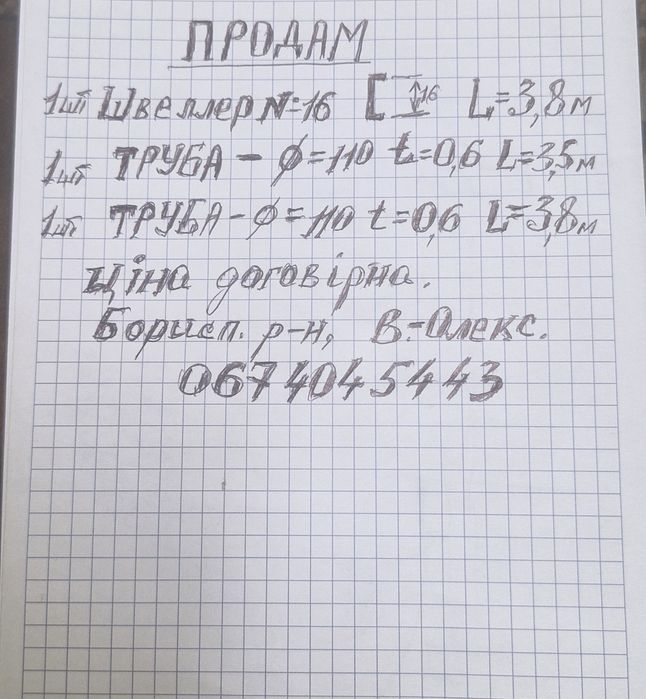 ПРОДАМ
1шт Швеллер N=16 [ 16 L=3,8м
1шт ТРУБА - ф=110 t=0,6 L=3,5м
1шт ТРУБА - ф=110 t=0,6 L=3,8м
Ціна договірна.
Борисп. р-н, В.-Олекс.
0674045443